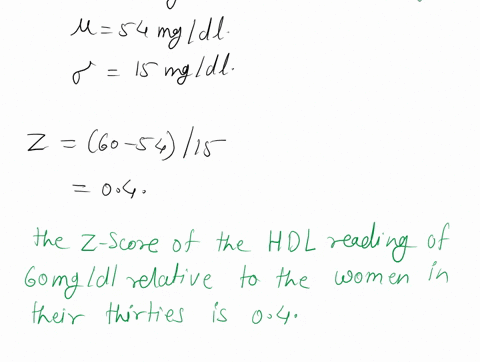 μ = 54 mg/dl.
σ = 15 mg/dl.
Z = (60-54)/15
= 0.4.
the Z-Score of the HDL reading of
60mg/dl relative to the women in
their thirties is 0.4.